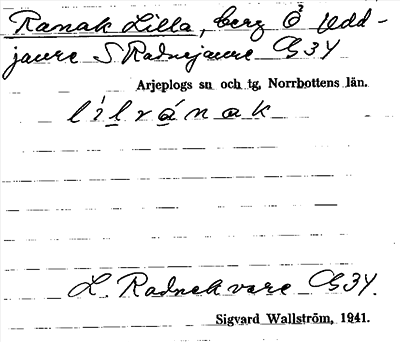 Ranak Lilla, berg Ö Udd-
jaure S Radnejaure G34
Arjeplogs sn och tg, Norrbottens län.
lílrának
L. Radnekvare G34.
Sigvard Wallström, 1941.